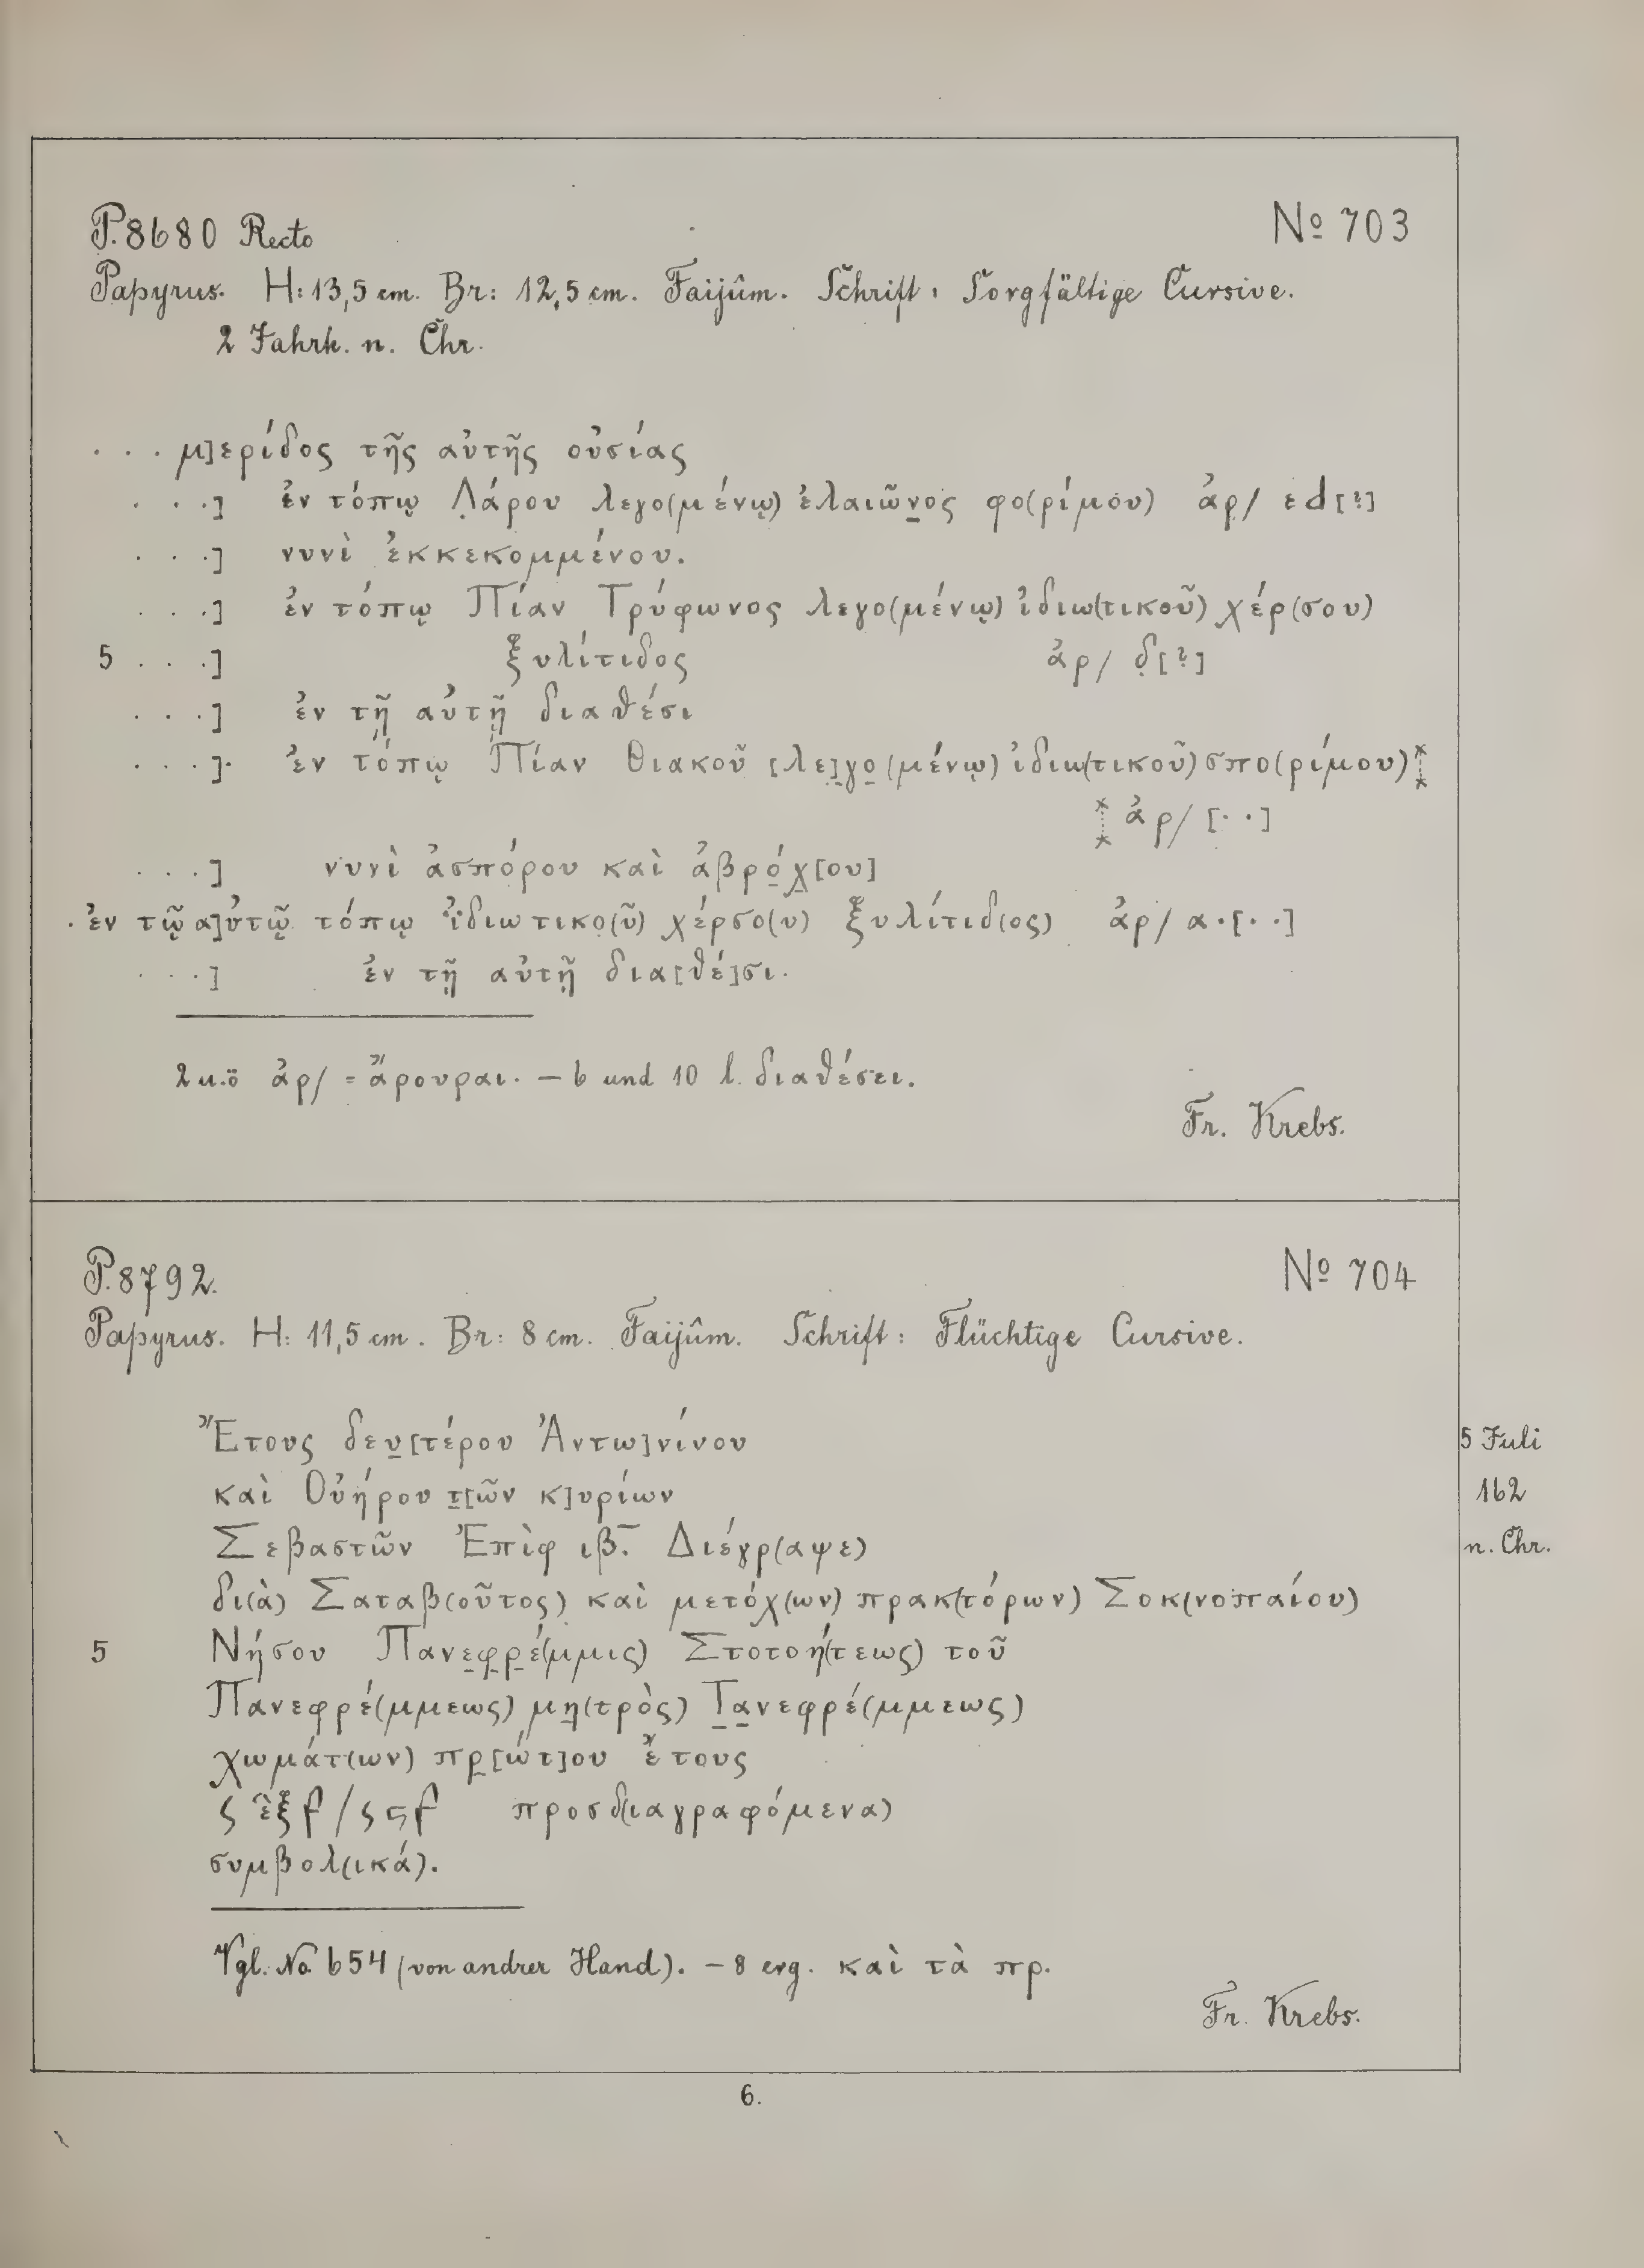 P. 8680 Recto
No 703
Papyrus. H: 13,5 cm. Br: 12,5 cm. Faijûm. Schrift: Sorgfältige Cursive.
2 Jahrh. n. Chr.
. . . μ]ερίδος τῆς αὐτῆς οὐσίας
. . .] ἐν τόπῳ Λ̣άρου λεγο(μένῳ) ἐλαιῶν̣ος φο(ρίμου) ἀρ/ εd[?]
. . .] νυνὶ ἐκκεκομμένου.
. . .] ἐν τόπῳ Πίαν Τρύφωνος λεγο(μένῳ) ἰδιω(τικοῦ) χέρ(σου)
5 . . .] ξυλίτιδος ἀρ/ δ̣[?]
. . .] ἐν τῇ αὐτῇ διαθέσι
. . .] ἐν τόπῳ Πίαν Θιακοῦ [λε]γ̣ο̣(μένῳ) ἰδιω(τικοῦ) σπο(ρίμου)
ἀρ/ [. .]
. . .] νυνὶ ἀσπόρου καὶ ἀβρό̣χ̣[ου]
. ἐν τῷ α]ὐτῷ τόπῳ ἰ̈διωτικο(ῦ) χέρσο(υ) ξυλίτιδ(ος) ἀρ/ α.[. .]
. . .] ἐν τῇ αὐτῇ δια[θέ]σι.
2 u. ö ἀρ/ = ἄρουραι. — 6 und 10 l. διαθέσει.
Fr. Krebs.
P. 8792.
No 704
Papyrus. H: 11,5 cm. Br: 8 cm. Faijûm. Schrift: Flüchtige Cursive.
Ἔτους δευ̣[τέρου Ἀντω]νίνου 5 Juli
καὶ Οὐήρου τ̣[ῶν κ]υρίων 162
Σεβαστῶν Ἐπὶφ ιβ̅. Διέγρ(αψε) n. Chr.
δι(ὰ) Σαταβ(οῦτος) καὶ μετόχ(ων) πρακ(τόρων) Σοκ(νοπαίου)
5 Νήσου Πανε̣φ̣ρ̣έ(μμις) Στοτοή(τεως) τοῦ
Πανεφρέ(μμεως) μη̣(τρὸς) Τ̣α̣νεφρέ(μμεως)
χωμάτ(ων) πρ̣[ώτ]ου ἔτους
προσδ(ιαγραφόμενα)
συμβολ(ικά).
Vgl. No 654 (von andrer Hand). — 8 erg. καὶ τὰ πρ.
Fr. Krebs.
6.